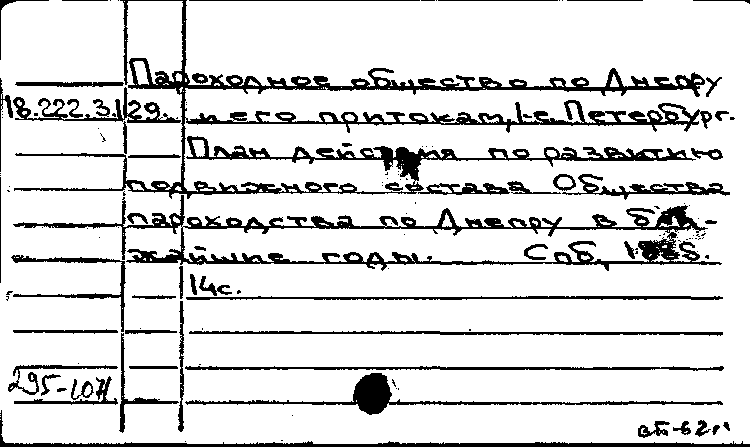 Пароходное общество по Днепру
18.222.3.129. и его притокам, 1-е. Петербург.
План действия по развитию
подвижного состава Общества
пароходства по Днепру в бли-
жайшие годы. Спб, 1888.
14с.
295-1071
вп-62г